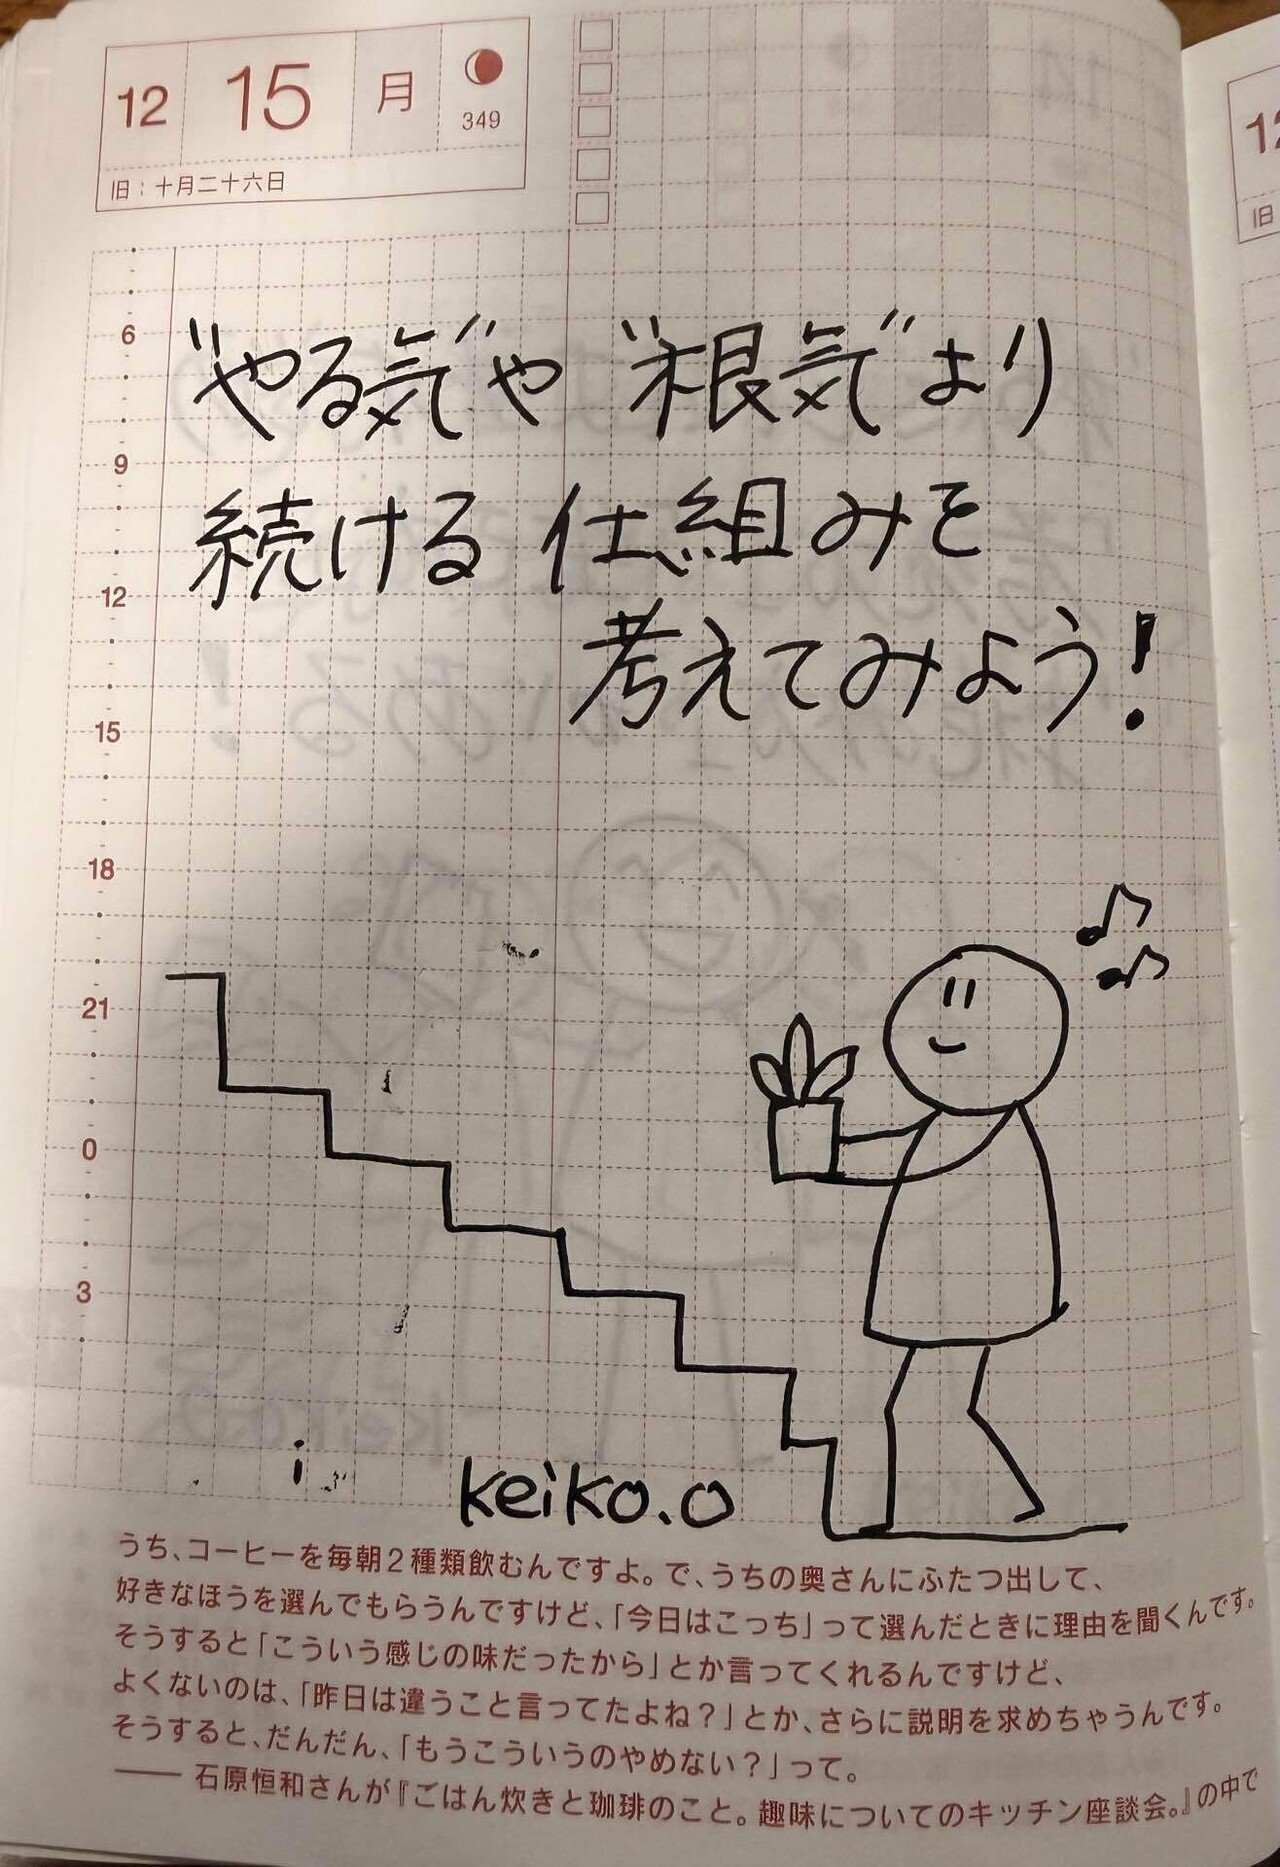 12 15 月
349
旧：十月二十六日
12
旧
6
9
12
15
18
21
0
3
"やる気"や"根気"より
続ける仕組みを
考えてみよう!
keiko.o
うち、コーヒーを毎朝２種類飲むんですよ。で、うちの奥さんにふたつ出して、
好きなほうを選んでもらうんですけど、「今日はこっち」って選んだときに理由を聞くんです。
そうすると「こういう感じの味だったから」とか言ってくれるんですけど、
よくないのは、「昨日は違うこと言ってたよね？」とか、さらに説明を求めちゃうんです。
そうすると、だんだん、「もうこういうのやめない？」って。
―― 石原恒和さんが『ごはん炊きと珈琲のこと。趣味についてのキッチン座談会。』の中で